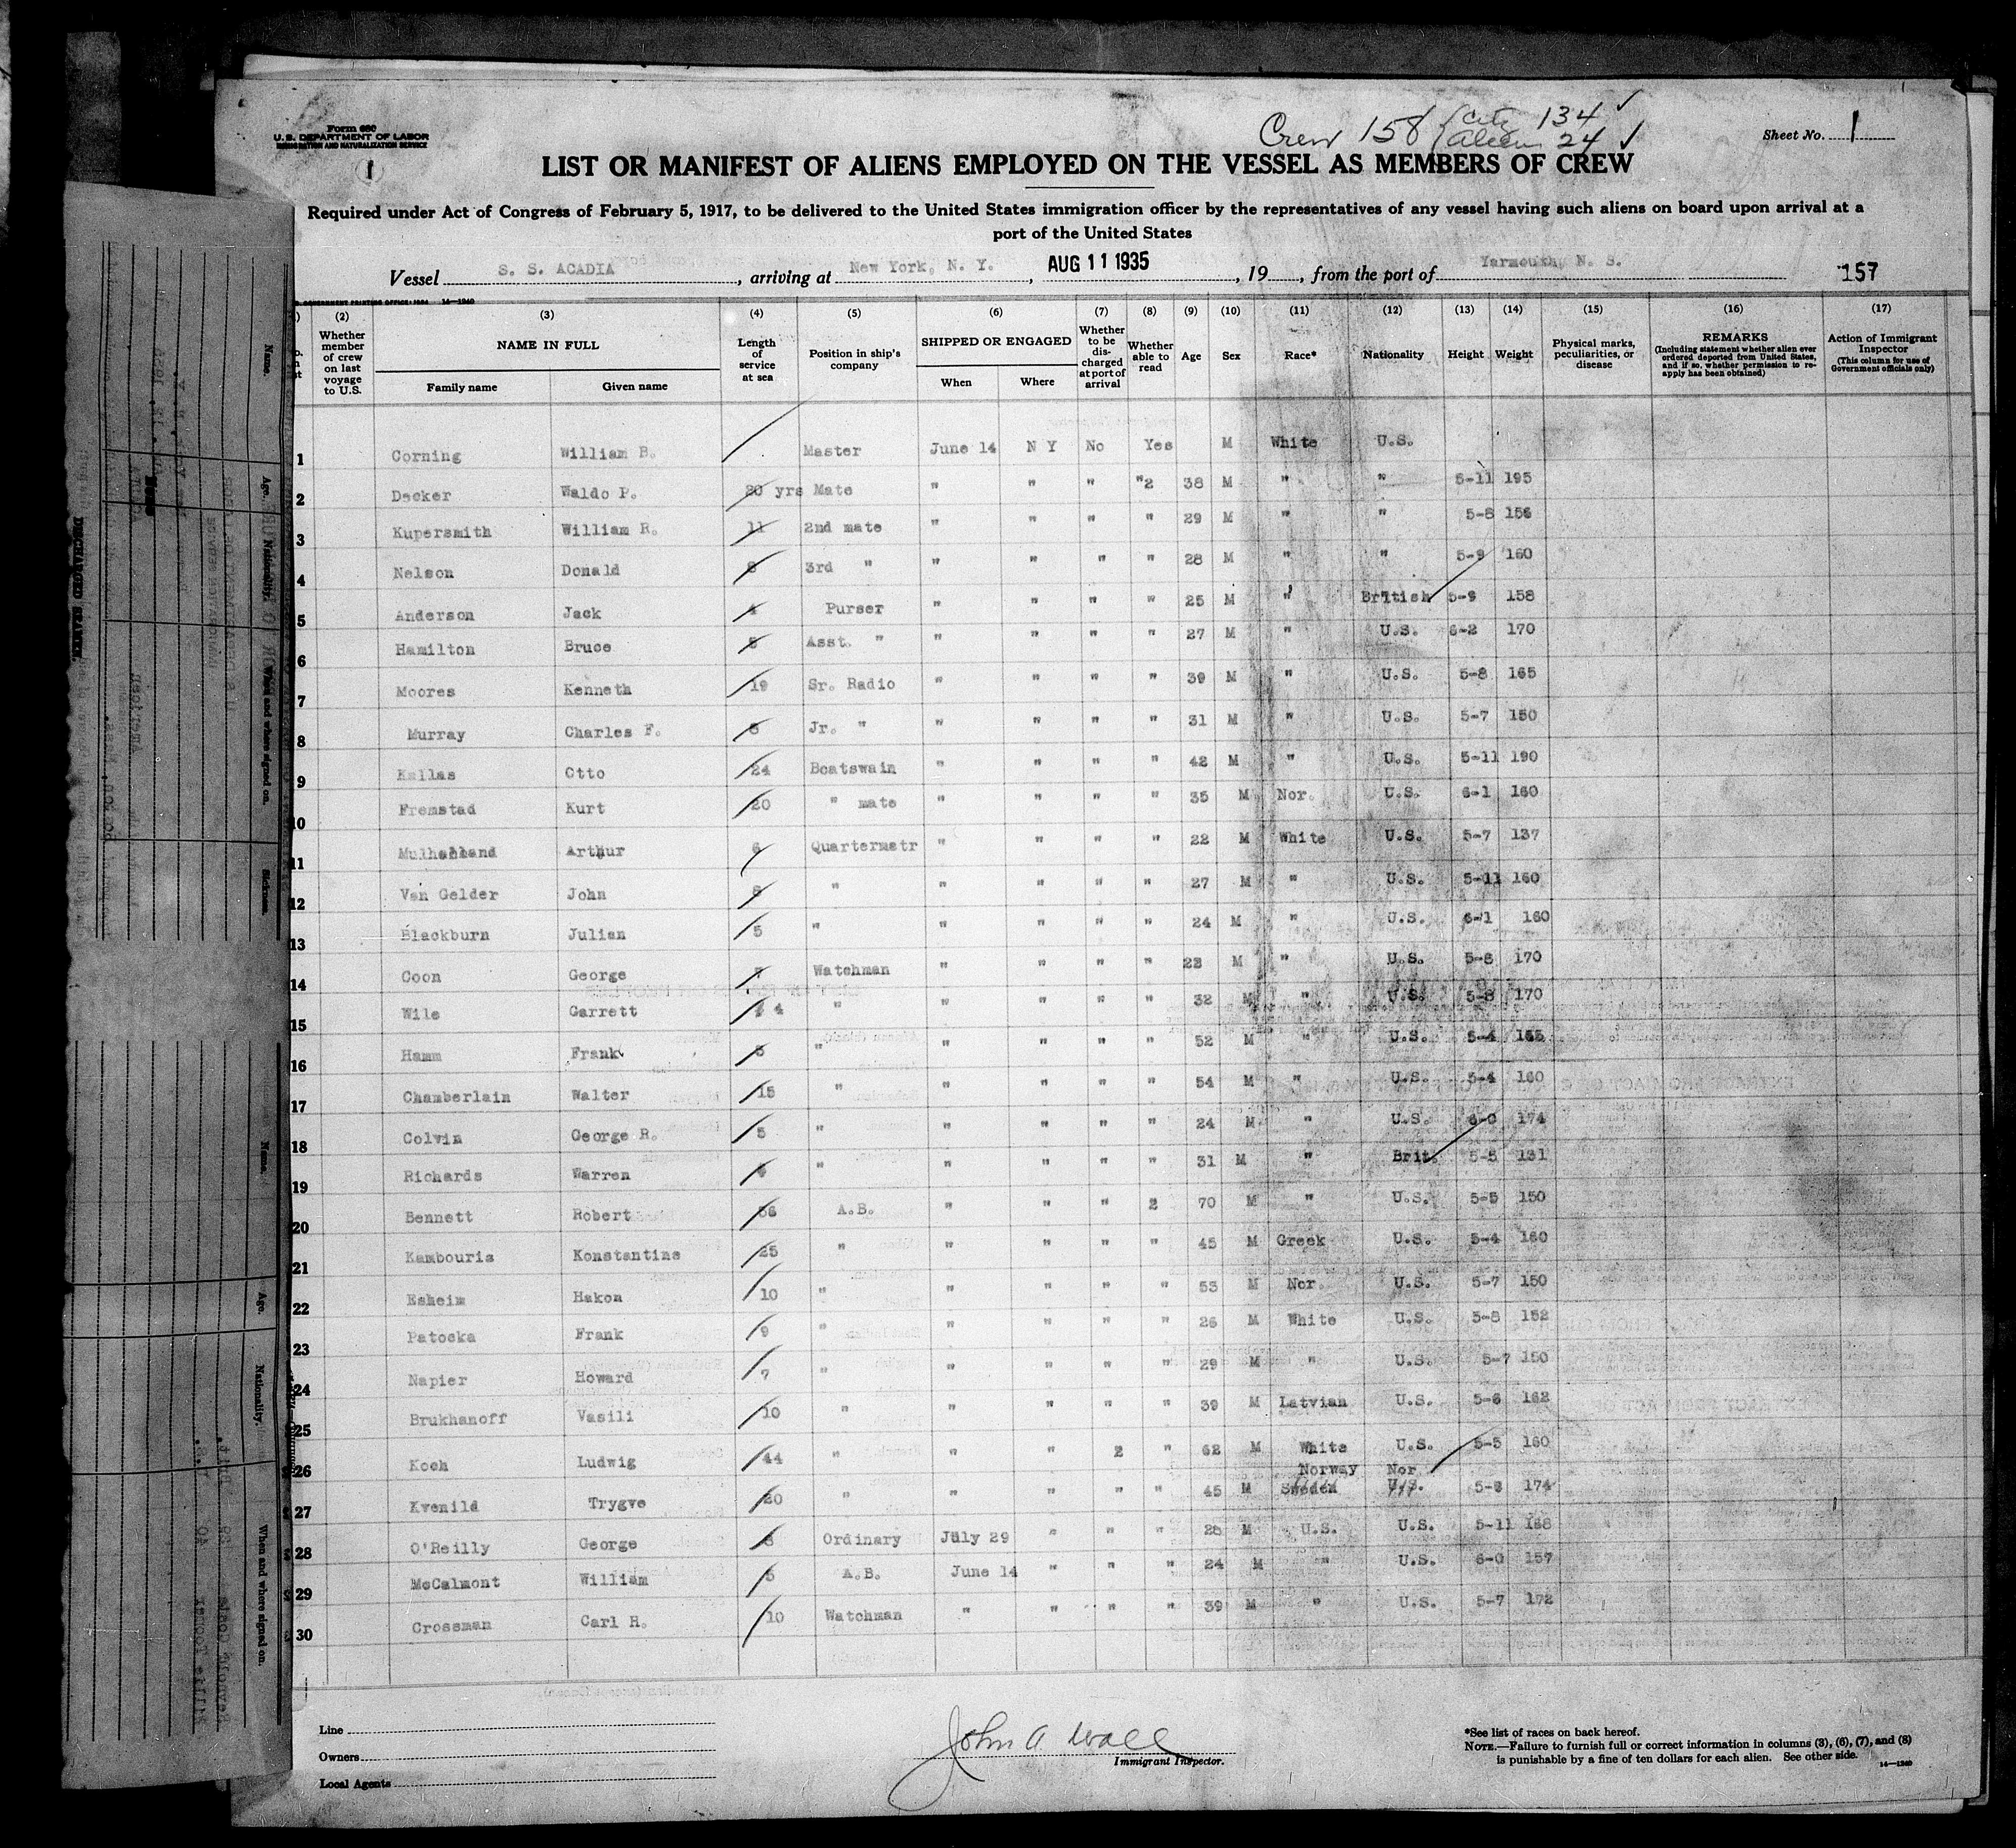 Form 680
U. S. DEPARTMENT OF LABOR
IMMIGRATION AND NATURALIZATION SERVICE
1
Crew 158 City 134 ✓
Aliens 24 ✓
Sheet No. 1
LIST OR MANIFEST OF ALIENS EMPLOYED ON THE VESSEL AS MEMBERS OF CREW
Required under Act of Congress of February 5, 1917, to be delivered to the United States immigration officer by the representatives of any vessel having such aliens on board upon arrival at a
port of the United States
Vessel S. S. ACADIA, arriving at New York, N. Y., AUG 11 1935, 19, from the port of Yarmouth, N. S. 157
(2) (3) (4) (5) (6) (7) (8) (9) (10) (11) (12) (13) (14) (15) (16) (17)
Whether member of crew on last voyage to U.S.
NAME IN FULL
Family name Given name
Length of service at sea
Position in ship's company
SHIPPED OR ENGAGED
When Where
Whether to be discharged at port of arrival
Whether able to read
Age
Sex
Race*
Nationality
Height
Weight
Physical marks, peculiarities, or disease
REMARKS
(Including statement whether alien ever ordered deported from United States, and if so, whether permission to reapply has been obtained)
Action of Immigrant Inspector
(This column for use of Government officials only)
1 Corning William B. Master June 14 N Y No Yes M White U.S.
2 Decker Waldo P. 20 yrs Mate " " " "2 38 M " " 5-11 195
3 Kupersmith William R. 11 2nd mate " " " " 29 M " " 5-8 156
4 Nelson Donald 8 3rd " " " " " 28 M " " 5-9 160
5 Anderson Jack 4 Purser " " " " 25 M " British 5-9 158
6 Hamilton Bruce Asst. " " " " " 27 M " U.S. 6-2 170
7 Moores Kenneth 19 Sr. Radio " " " " 39 M " U.S. 5-8 165
8 Murray Charles F. Jr. " " " " " 31 M " U.S. 5-7 150
9 Kallas Otto 24 Boatswain " " " " 42 M " U.S. 5-11 190
10 Fremstad Kurt 20 " mate " " " " 35 M Nor. U.S. 6-1 160
11 Arthur 6 Quartermstr " " " " 22 M White U.S. 5-7 137
12 Van Gelder John " " " " " 27 M " U.S. 5-11 160
13 Blackburn Julian 5 " " " " " 24 M " U.S. 6-1 160
14 Coon George Watchman " " " " 22 M " U.S. 5-8 170
15 Wile Garrett 4 " " " " " 32 M " U.S. 5-8 170
16 Hamm Frank 5 " " " " " 52 M " U.S. 5-4 155
17 Chamberlain Walter 15 " " " " " 54 M " U.S. 5-4 160
18 Colvin George R. 5 " " " " " 24 M " U.S. 6-0 174
19 Richards Warren " " " " " 31 M " Brit. 5-8 131
20 Bennett Robert 56 A.B. " " " 2 70 M " U.S. 5-5 150
21 Kambouris Konstantine 25 " " " " " 45 M Greek U.S. 5-4 160
22 Esheim Hakon 10 " " " " " 53 M Nor. U.S. 5-7 150
23 Patocka Frank 9 " " " " " 26 M White U.S. 5-8 152
24 Napier Howard 7 " " " " " 29 M " U.S. 5-7 150
25 Brukhanoff Vasili 10 " " " " " 39 M Latvian U.S. 5-6 162
26 Koch Ludwig 44 " " " 2 " 62 M White U.S. 5-5 160
Norway Nor
27 Kvenild Trygve 20 " " " " " 45 M Sweden U.S. 5-8 174
28 O'Reilly George 8 Ordinary July 29 " " " 26 M U.S. U.S. 5-11 168
29 McCalmont William 5 A.B. June 14 " " " 24 M " U.S. 6-0 157
30 Crossman Carl H. 10 Watchman " " " " 39 M " U.S. 5-7 172
Line
Owners
Local Agents
John A Wall
Immigrant Inspector.
*See list of races on back hereof.
NOTE.—Failure to furnish full or correct information in columns (3), (6), (7), and (8)
is punishable by a fine of ten dollars for each alien. See other side.
14—1240